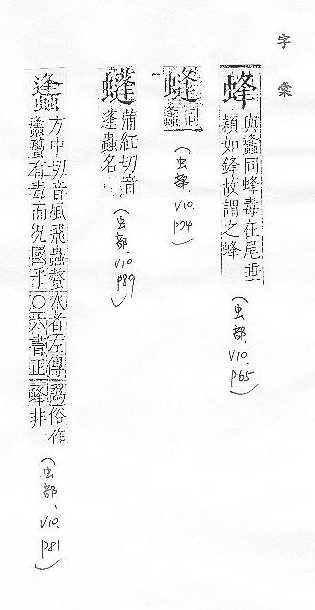 字彙
蜂 與螽同蜂毒在尾垂
穎如鋒故謂之蜂
(虫部、V10、P65)
蜂 同
(虫部、V10、P74)
蓬 蒲紅切音
蓬蟲名
(虫部、V10、P89)
方中切音風飛蟲螫人者左傳
蠭蠆有毒而況國乎○六書正譌俗作
蜂非
(虫部、V10、P81)